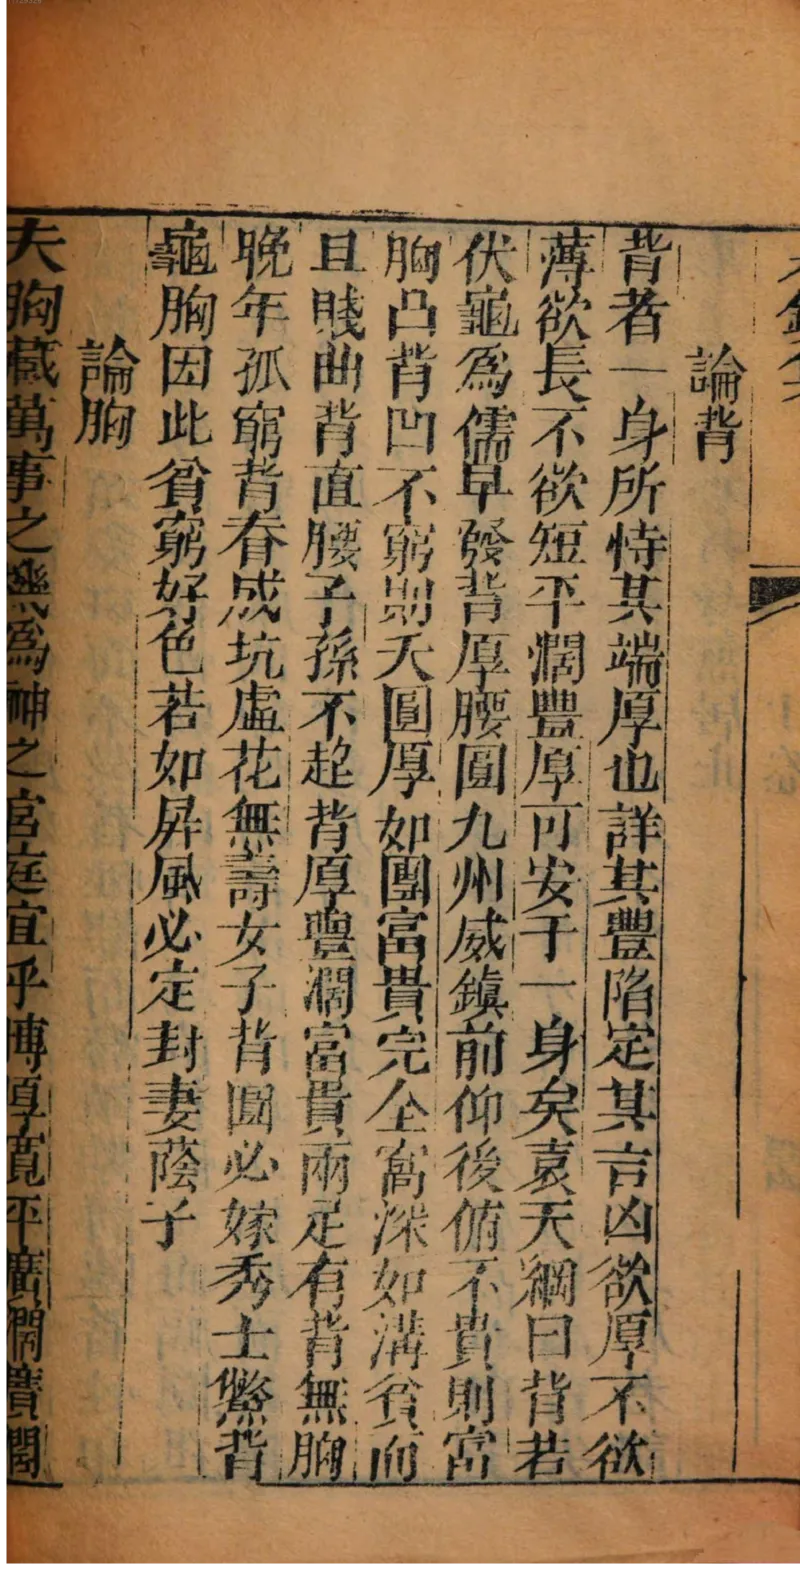 論背
背者一身所恃其端厚也詳其豐陷定其吉凶欲厚不欲
薄欲長不欲短平濶豐厚可安于一身矣袁天綱曰背若
伏龜爲儒早發背厚腰圓九州威鎮前仰後俯不貴則富
胸凸背凹不窮則夭圓厚如團富貴完全窩深如溝貧而
且賤曲背直腰子孫不起背厚豐濶富貴兩足有背無胸
晚年孤窮背脊成坑虛花無壽女子背圓必嫁秀士鱉背
龜胸因此貧窮好色若如屏風必定封妻蔭子
論胸
夫胸藏萬事之機爲神之宮庭宜乎博厚寬平廣濶